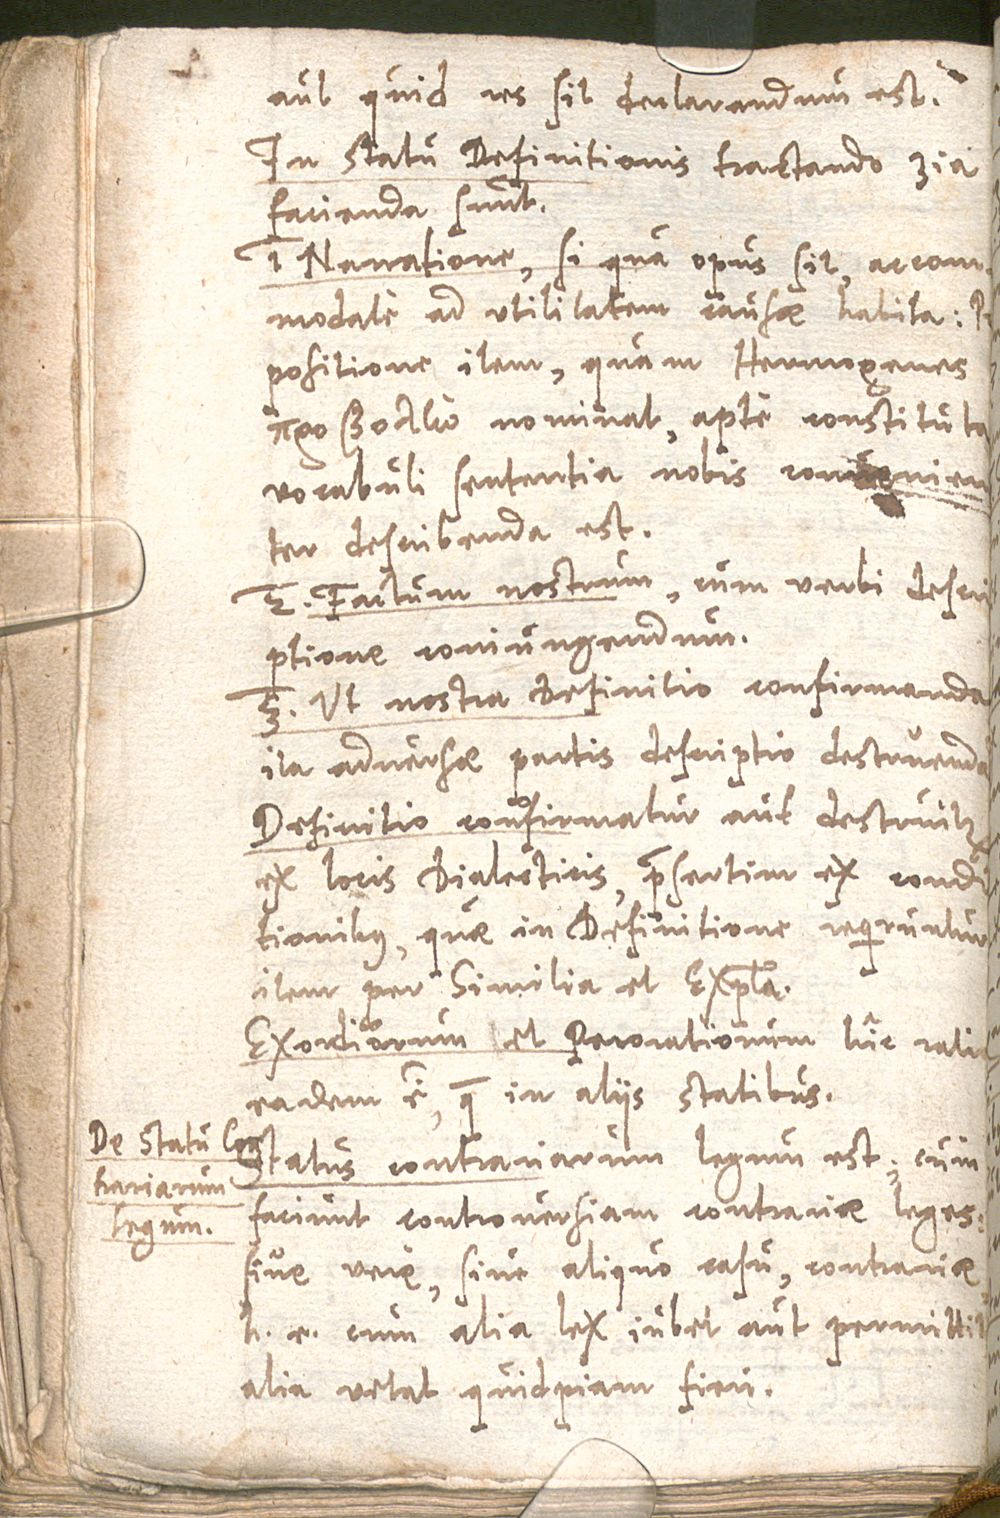 aut quid res sit declarandum est.
In statu Definitionis tractando 3ia
facienda sunt.
1 Narratione, si qua opus sit, accom-
modatè ad utilitatem causæ habita: Pr
positione item, quam Hermogenes
nominat, aptè constituta
vocabuli sententia nobis convenien
ter describenda est.
2. Factum nostrum, cum verbi descri
ptione coniungendum.
3. Ut nostra definitio confirmanda
ita adversæ partis descriptio destruenda
Definitio confirmatur aut destruitr
ex locis Dialecticis, p̄sertim ex condi
tionibꝰ, quæ in Definitione reqꝛuntur
item per Similia et Expla.
Exordiorum et Perorationum hîc ratio
eadem ē, q̄ in alijs statibus.
De Statu Con
trariarum
legum.
Status contrariarum legum est, cum
faciunt controversiam contrariæ leges:
sive veræ, sive aliquo casu, contrariæ,
h. e. cum alia lex iubet aut permittit
alia vetat quidpiam fieri.